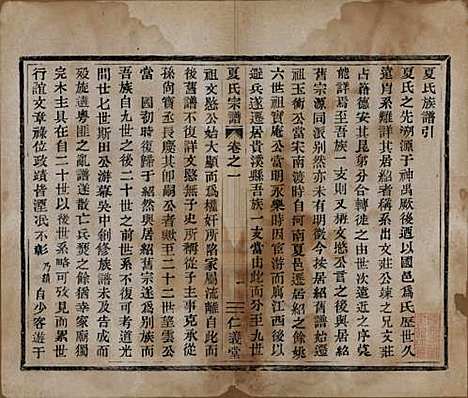 夏氏族譜引
夏氏之先溯源于神禹厥後以國邑爲氏歷世久
遠支系難詳其居紹者稱系出文莊公竦之兄文莊
占籍德安其昆弟分合轉徙之由世次遠近之序莫
能詳焉至吾族一支則又稱文愍公言之後與居紹
舊宗源同派別今以兩支世系考之居紹舊譜始遷
祖允生庵公宋南渡時自河南夏邑遷居紹之餘姚
六世祖可軒公明永樂時官游而寓江西後以
避兵遂遷居貴溪縣吾族一支當由此而分至九世
夏氏宗譜
卷之一
一
三
仁義堂
祖文愍公始大顯而爲權奸所陷家屬流徙
後舊譜不復可考文愍公生子主事克承從
孫尚寶丞長慶其仰嗣公者歟至二十二世堂雲公
當國初時始歸紹然與居紹舊宗遂爲別族而
吾族自九世之後二十世以前遂不復可考道光
廿七世斯田公游幕吳中創修族譜未及告成而
歿旋遭粵匪之亂譜遂散亡兵燹之餘猶幸家廟獨
完木主具在自二十世以後世系略可見而累世
行誼文章祿位政績皆湮泯不彰乃鎮自少客遊于